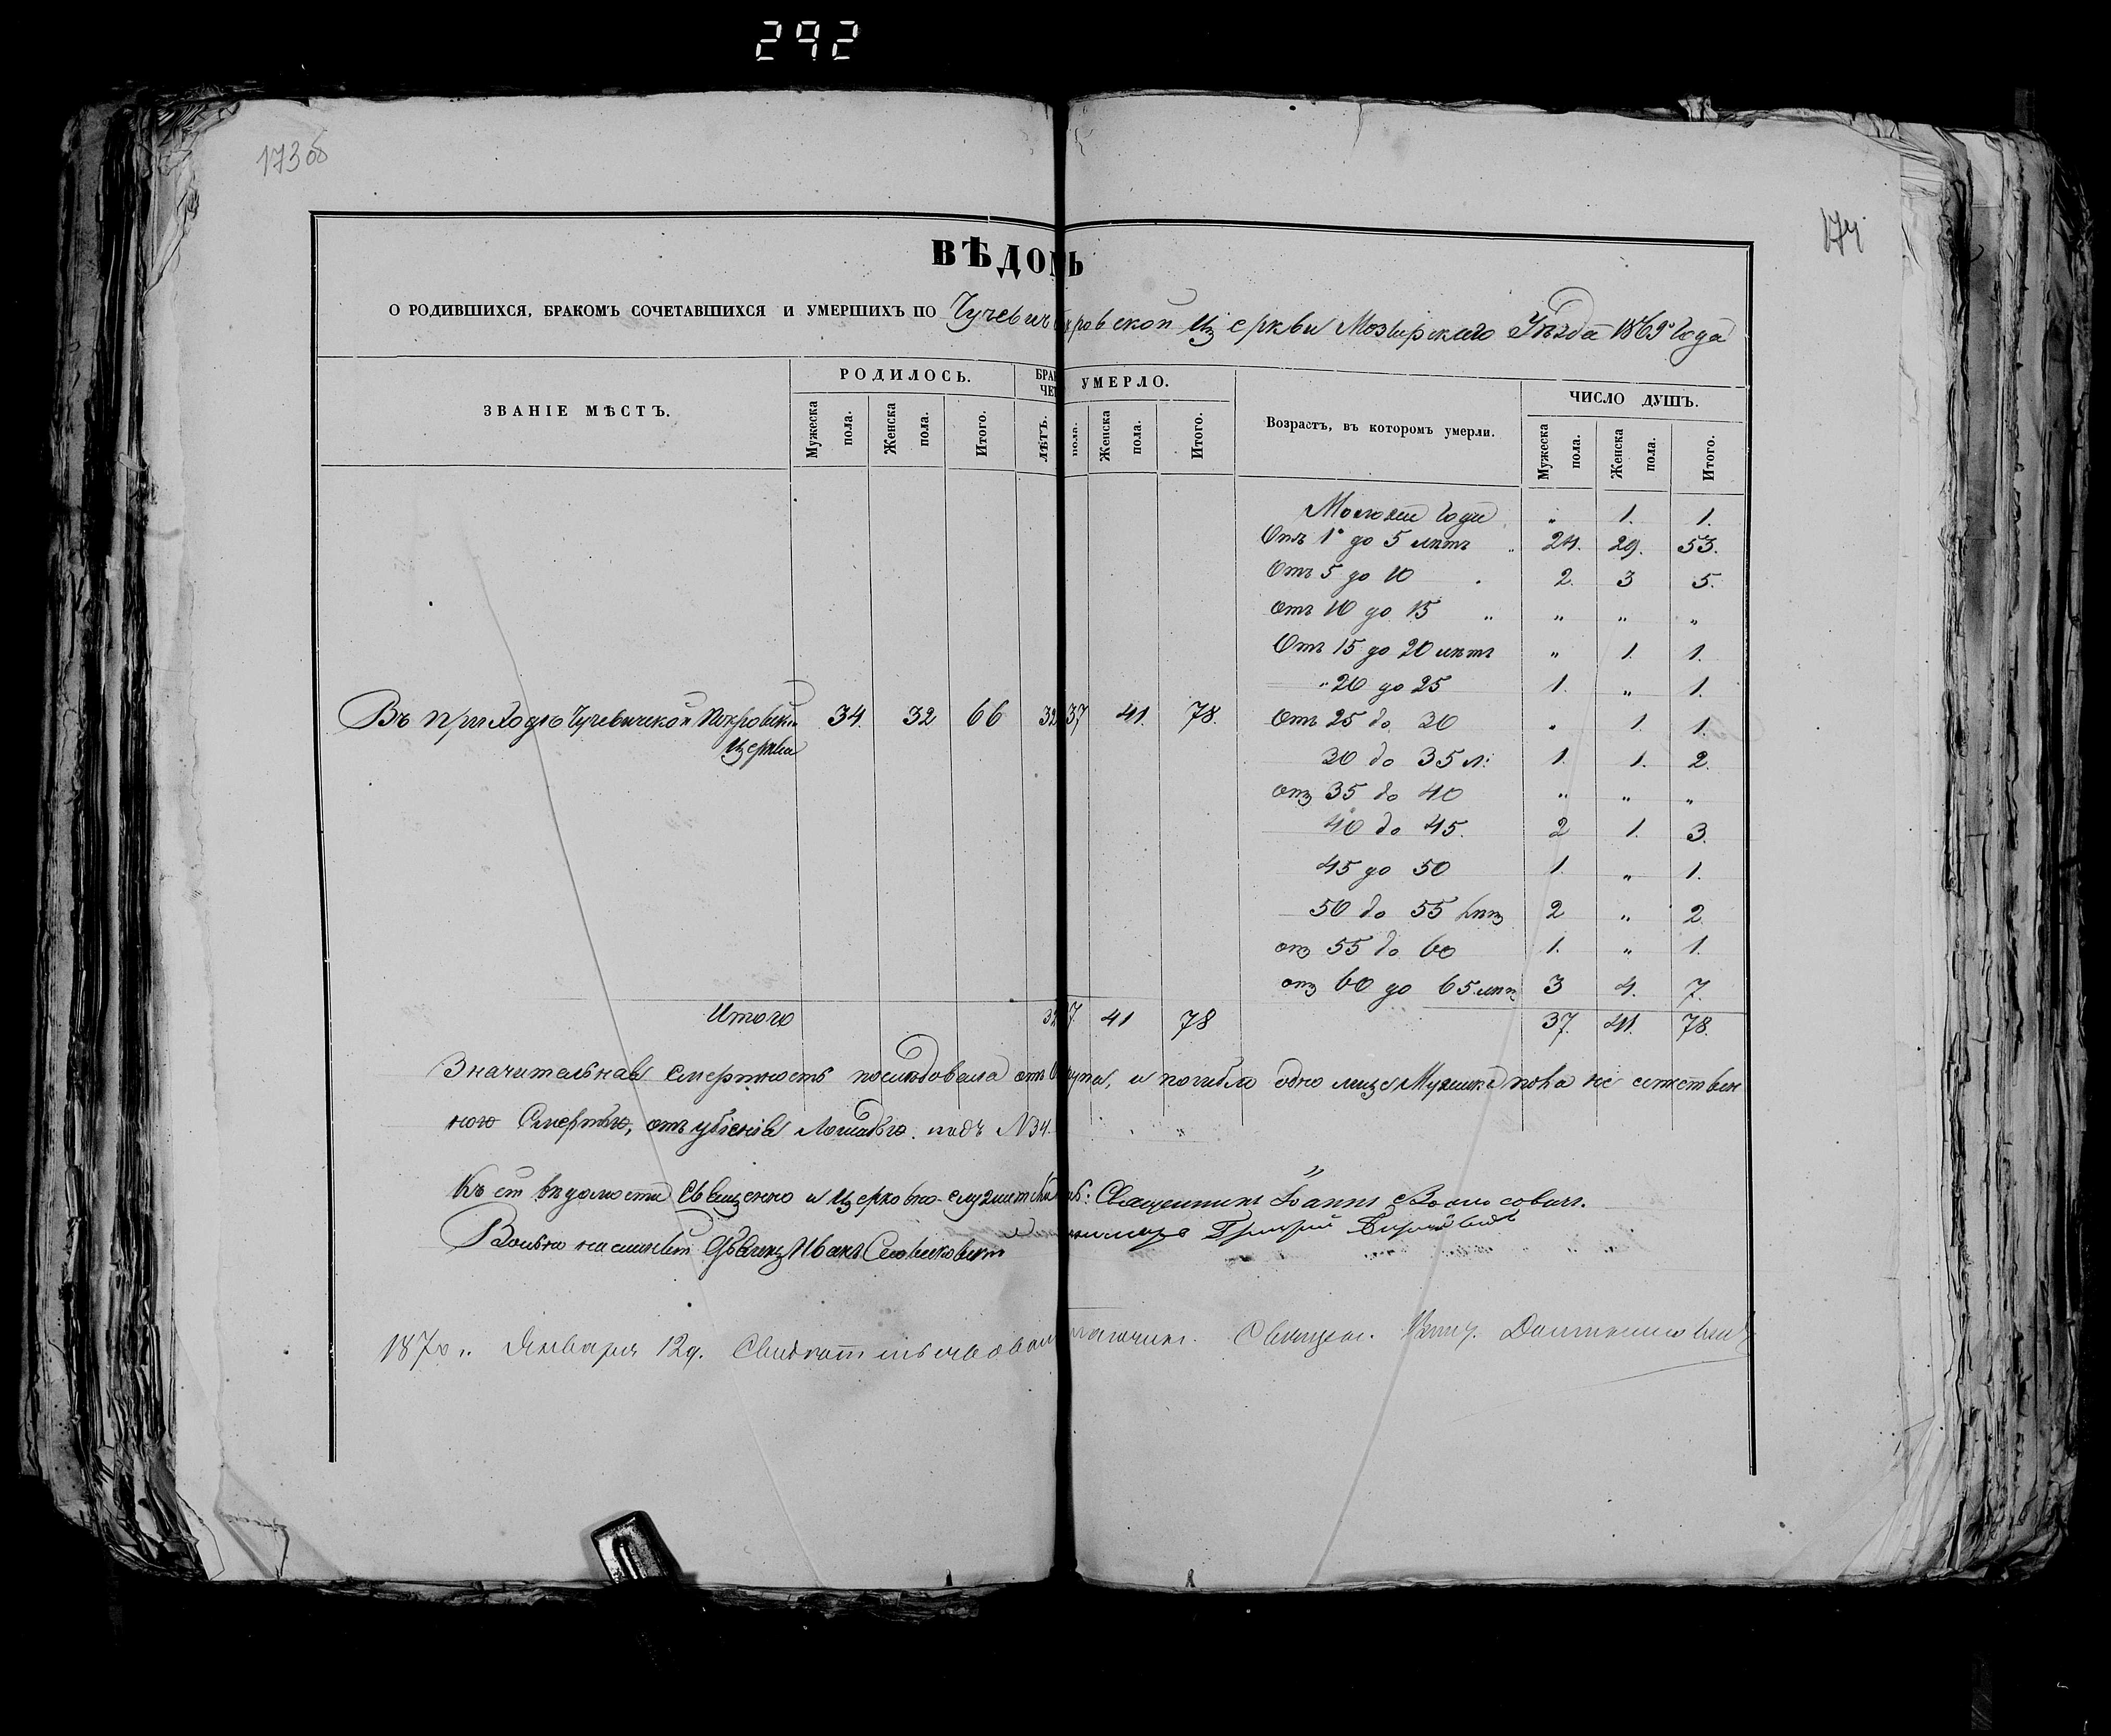 292
173об
174
ВѢДОМЬ
О РОДИВШИХСЯ, БРАКОМЪ СОЧЕТАВШИХСЯ И УМЕРШИХЪ ПО Чучевич кровской Церкви Мозырскаго Уѣзда 1869 года
ЗВАНІЕ МѢСТЪ. РОДИЛОСЬ. БРАК УМЕРЛО. Возрастъ, въ которомъ умерли. ЧИСЛО ДУШЪ.
ЧЕТ
Мужеска пола. Женска пола. Итого. ЛѢТЪ. пола. Женска пола. Итого. Мужеска пола. Женска пола. Итого.
Моложе года „ 1. 1.
Отъ 1го до 5 лѣтъ 24. 29. 53.
Отъ 5 до 10 2. 3 5.
отъ 10 до 15 „ „ „ „
Отъ 15 до 20 лѣтъ „ 1. 1.
„ 20 до 25 1. „ 1.
Въ приходѣ Чучевичской Покровской 34. 32 66 32 37 41. 78. Отъ 25 до 30 „ 1. 1.
Церкви
30 до 35 л: 1. 1. 2.
отъ 35 до 40 „ „ „
40 до 45. 2 1. 3.
45 до 50 1. „ 1.
50 до 55 лѣтъ 2 „ 2.
отъ 55 до 60 1. „ 1.
отъ 60 до 65 лѣтъ 3 4. 7.
Итого 32 7. 41 78 37. 41. 78.
Значительная смертность послѣдовала отъ упа, и погибло одно лице Мужска пола не естествен
ною Смертью, отъ убіенія лошадью подъ №34.
Къ сей вѣдомости Священно и церковно-служители Священникъ Іоаннъ
Григорій
Иванъ
1870 г. Января 12 д. Священ.